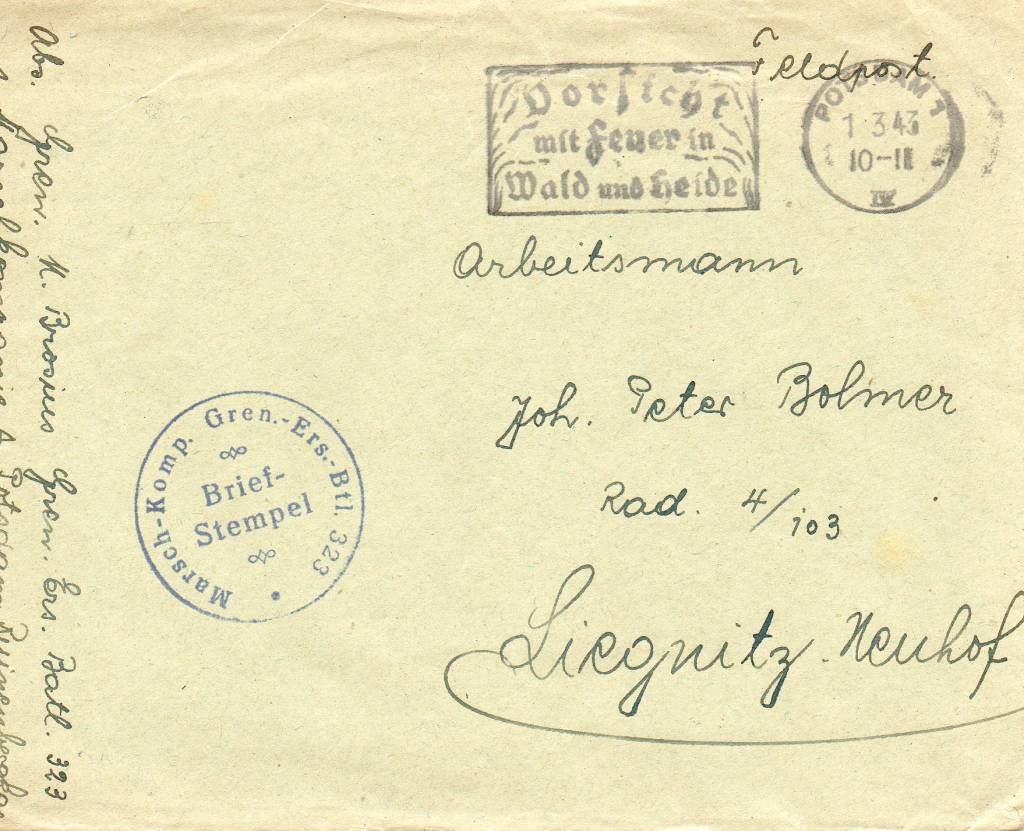 Feldpost.
Vorsicht
mit Feuer in
Wald und Heide
POTSDAM 1
1.3.43
10-11
IV
Arbeitsmann
Joh. Peter Bolmer
Rad. 4/103
Liegnitz-Neuhof
Marsch-Komp. Gren.-Ers.-Btl. 323
Brief-
Stempel
Abs. Gren. N. Brosius Gren. Ers. Batl. 323
Marschkompanie Potsdam